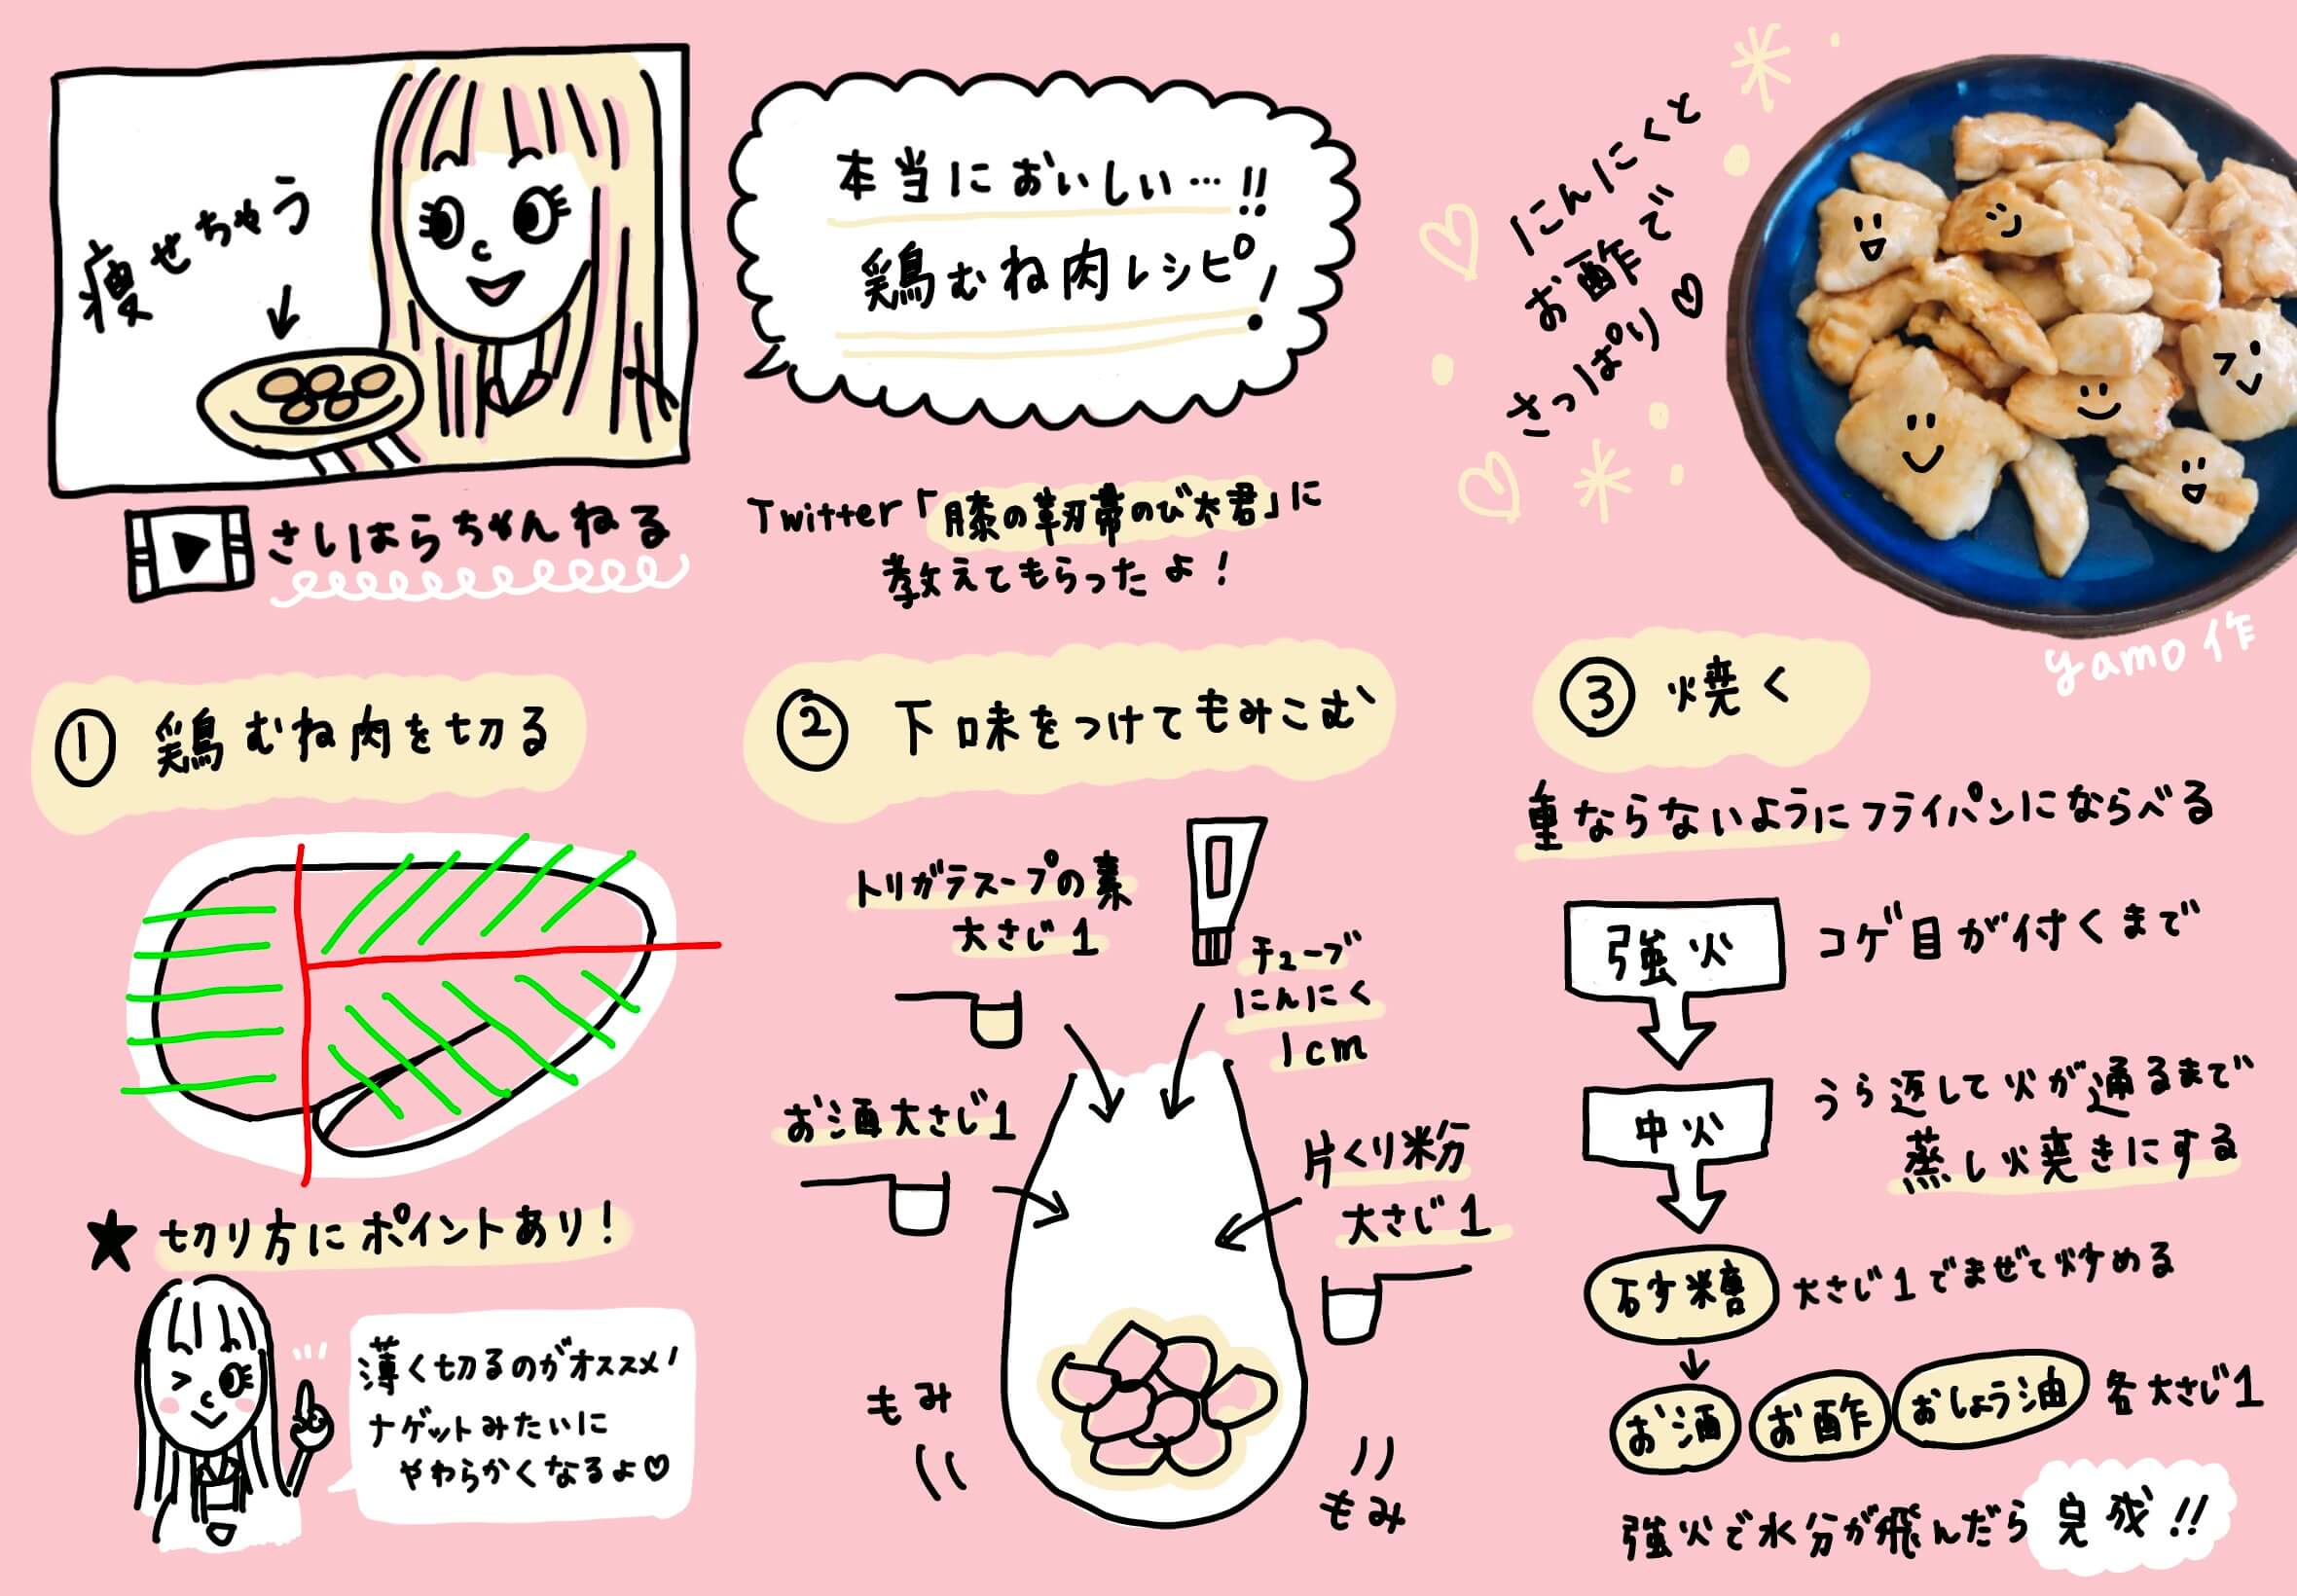 痩せちゃう
さいはらちゃんねる
本当においしい…!!
鶏むね肉レシピ!
Twitter「膝の靭帯のび太君」に
教えてもらったよ!
にんにくと
お酢で
さっぱり♡
yamo作
① 鶏むね肉を切る
★ 切り方にポイントあり!
薄く切るのがオススメ!
ナゲットみたいに
やわらかくなるよ♡
② 下味をつけてもみこむ
トリガラスープの素
大さじ1
チューブ
にんにく
1cm
お酒大さじ1
片くり粉
大さじ1
もみ
もみ
③ 焼く
重ならないようにフライパンにならべる
強火 コゲ目が付くまで
中火 うら返して火が通るまで
蒸し焼きにする
砂糖 大さじ1でまぜて炒める
お酒 お酢 おしょう油 各大さじ1
強火で水分が飛んだら完成!!